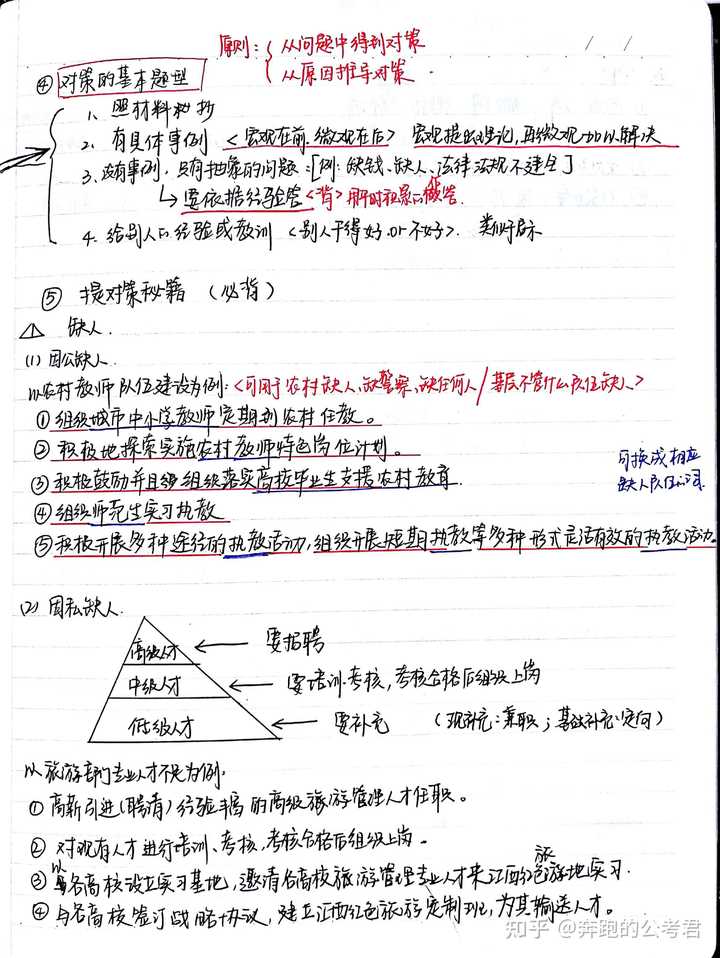 原则：{ 从问题中得到对策
从原因推导对策.
④ 对策的基本题型
1、照材料抄抄
2、有具体事例 <宏观在前.微观在后> 宏观提出理论,再微观加以解决
3、没有事例.只有抽象的问题:[例:缺钱、缺人、法律法规不健全]
↳要依据经验答<背>用时
4.给别人的经验或教训 <别人干得好.or不好>.
⑤ 提对策秘籍 (必背)
△ 缺人.
(1) 因公缺人.
以农村教师队伍建设为例:<可用于农村缺人、缺警察、缺任何人/基层不管什么队伍缺人>
①组织城市中小学教师定期到农村任教。
②积极地探索实施农村教师特色岗位计划。
③积极鼓励并且组织落实高校毕业生支援农村教育
④组织师范生实习执教
⑤积极开展多种途径的执教活动,组织开展短期执教等多种形式灵活有效的执教活动.
可换成相应
缺人队伍的词
(2) 因私缺人.
高级人才 ← 要招聘
中级人才 ← 要培训.考核,考核合格后组织上岗
低级人才 ← 要补充 (现补充:兼职;基础补充:定向)
以旅游部门专业人才不足为例.
①高薪引进(聘请)经验丰富的高级旅游管理人才任职。
②对现有人才进行培训、考核,考核合格后组织上岗.
③与各高校设立实习基地,邀请各高校旅游管理专业人才来江西红色旅游地实习.
④与各高校签订战略协议,建立江西红色旅游定制班,为其输送人才。
知乎 @奔跑的公考君